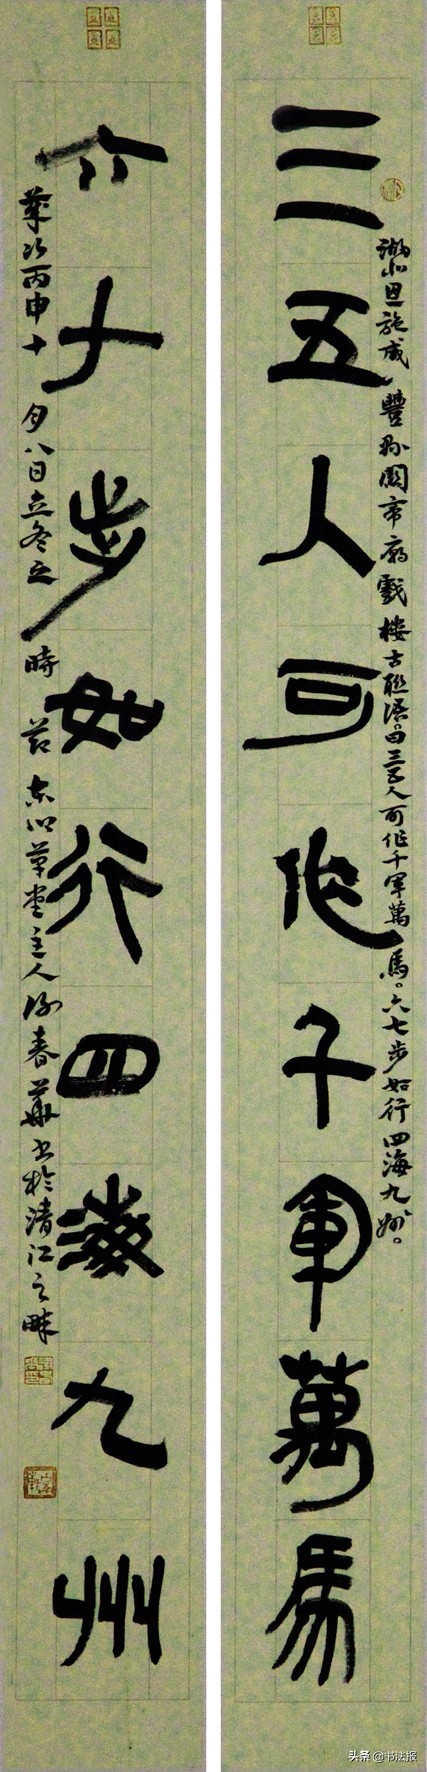 三五人可作千軍萬馬
湖北恩施咸豐縣關帝廟戲樓古聯語曰三五人可作千軍萬馬。六七步如行四海九州。
六七步如行四海九州
歲次丙申十月八日立冬之時節草堂主人春華书於清江之畔
头条 @书法报